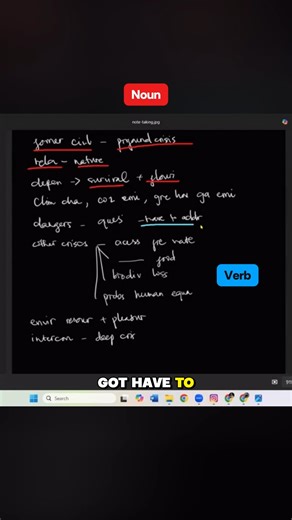 Noun
note-taking.jpg
human civil - profound crisis
rela - nature
depen → survival + flouri
Clim cha, co2 emi, gre hou ga emi
dangers - ques - have to addr
other crises - access fre wate
food
biodiv los
probs human equa
Verb
envir resour + pleasur
intercon - deep cris
GOT HAVE TO
Search